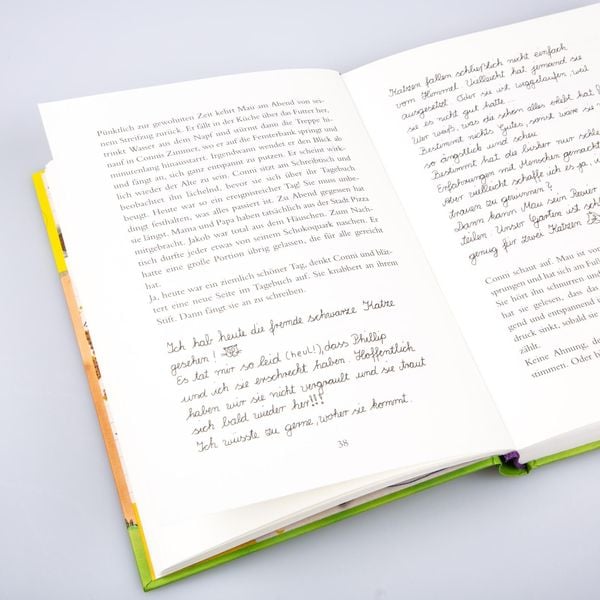 Pünktlich zur gewohnten Zeit kehrt Mau am Abend von sei-
nem Streifzug zurück. Er fällt in der Küche über das Futter her,
trinkt Wasser aus dem Napf und stürmt dann die Treppe hi-
nauf in Connis Zimmer, wo er auf die Fensterbank springt und
minutenlang hinausstarrt. Irgendwann wendet er den Blick ab
und fängt an, sich ganz entspannt zu putzen. Er scheint wirk-
lich wieder der Alte zu sein. Conni sitzt am Schreibtisch und
beobachtet ihn lächelnd, bevor sie sich über ihr Tagebuch
beugt. Heute war so ein ereignisreicher Tag! Sie muss unbe-
dingt festhalten, was alles passiert ist. Zu Abend gegessen hat
sie längst. Mama und Papa haben tatsächlich aus der Stadt Pizza
mitgebracht. Jakob war total aus dem Häuschen. Zum Nach-
tisch durfte jeder etwas von seinem Schokoquark naschen. Er
hatte eine große Portion übrig gelassen, die für alle gereicht
hat.
Ja, heute war ein ziemlich schöner Tag, denkt Conni und blät-
tert eine neue Seite im Tagebuch auf. Sie knabbert an ihrem
Stift. Dann fängt sie an zu schreiben.
Ich hab heute die fremde schwarze Katze
gesehen!
Es tat mir so leid (heul!), dass Phillip
und ich sie erschreckt haben. Hoffentlich
haben wir sie nicht vergrault und sie traut
sich bald wieder her!!!
Ich wüsste zu gerne, woher sie kommt.
38
Katzen fallen schließlich nicht einfach
vom Himmel. Vielleicht hat jemand sie
ausgesetzt. Oder sie ist weggelaufen, weil
sie es nicht gut hatte...
Wer weiß, was sie schon alles erlebt hat
Bestimmt nichts Gutes, sonst wäre sie
so ängstlich und scheu
Bestimmt hat sie bisher nur
Erfahrungen mit Menschen gemacht
Aber vielleicht schaffe ich es ja,
trauen zu gewinnen?
Dann kann Mau sein Revier
teilen. Unser Garten ist
genug für zwei Katzen
Conni schaut auf. Mau ist von
sprungen und hat sich am Fuß
Sie hört ihn schnurren und
hat sie gelesen, dass das
gend und entspannend
druck sinkt, sobald sie
zählt.
Keine Ahnung, de
stimmen. Oder b